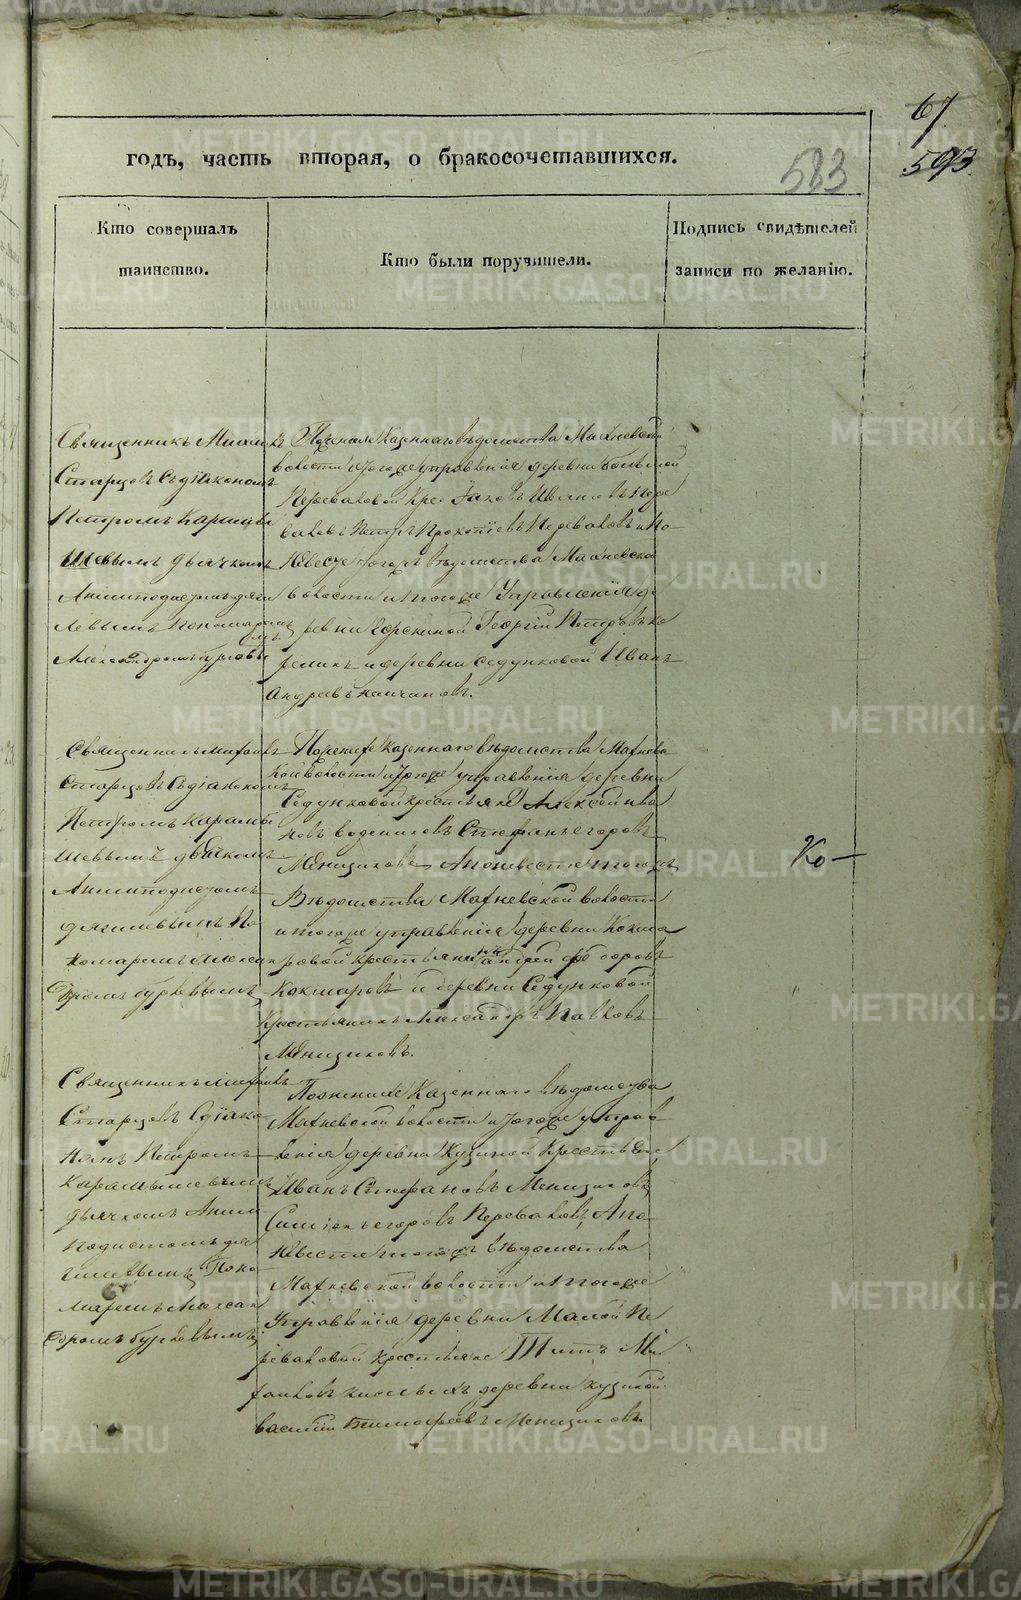 67.
593.
годъ, часть вторая, о бракосочетавшихся.
583
Кто совершалъ
таинство.
Кто были поручители.
Подпись свидѣтелей
записи по желанію.
Священникъ Михаилъ
Старцовъ Съ діякономъ
Петромъ Карамы
шевымъ дьячкомъ
Антиподистомъ дяги
левымъ Пономаремъ
Александромъ бурдовы
По женихе Казеннаго вѣдомства Махневской
волости и Тогоже управленія деревни большой
Переваловой Кре. Іаковъ Ивановъ Пере
валовъ Петръ Прокопіевъ Переваловъ и По
Невесте Тогожъ вѣдомства Махневской
волости и тогоже Управленія де
ревни Горскиной Георгій Петровъ
и деревни Седунковой Иванъ
Андреевъ
Священникъ Михаилъ
Старцовъ Съ діакономъ
Петромъ Карамы
шевымъ дьячкомъ
Антиподистомъ
дягилевымъ По
номаремъ Алексан
дромъ
По женихе Казеннаго вѣдомства Махнев
кой Волости и Тогоже управленія деревни
Седунковой крестьяне Алексей Ива
новъ Стефанъ Егоровъ
Меншиковъ А по невесте тогожъ
Вѣдомства Махневской волости
и тогоже управленія деревни Кокша
ровой крестьянинъ Андрей Феодоровъ
Кокшаровъ и деревни Седунковой
Крестьянинъ Александръ Павловъ
Меншиковъ.
Ко
Священникъ Михаилъ
Старцовъ С діако
номъ Петромъ
Карамышевымъ
дьячкомъ Анти
подистомъ дя
гилевымъ Поно
маремъ Алексан
дромъ
По женихе Казеннаго вѣдомства
Махневской волости и Тогоже управ
ленія деревни Кузиной Крестьяне
Иванъ Стефановъ Меншиковъ
Симіонъ Егоровъ Переваловъ, А по
Невесте тогожъ вѣдомства
Махневской волости и тогоже
Управленія деревни Малой Пе
реваловой крестьяне Титъ Ми
хаиловъ деревни кузиной
василій Тимофеевъ Меншиковъ.
METRIKI.GASO-URAL.RU